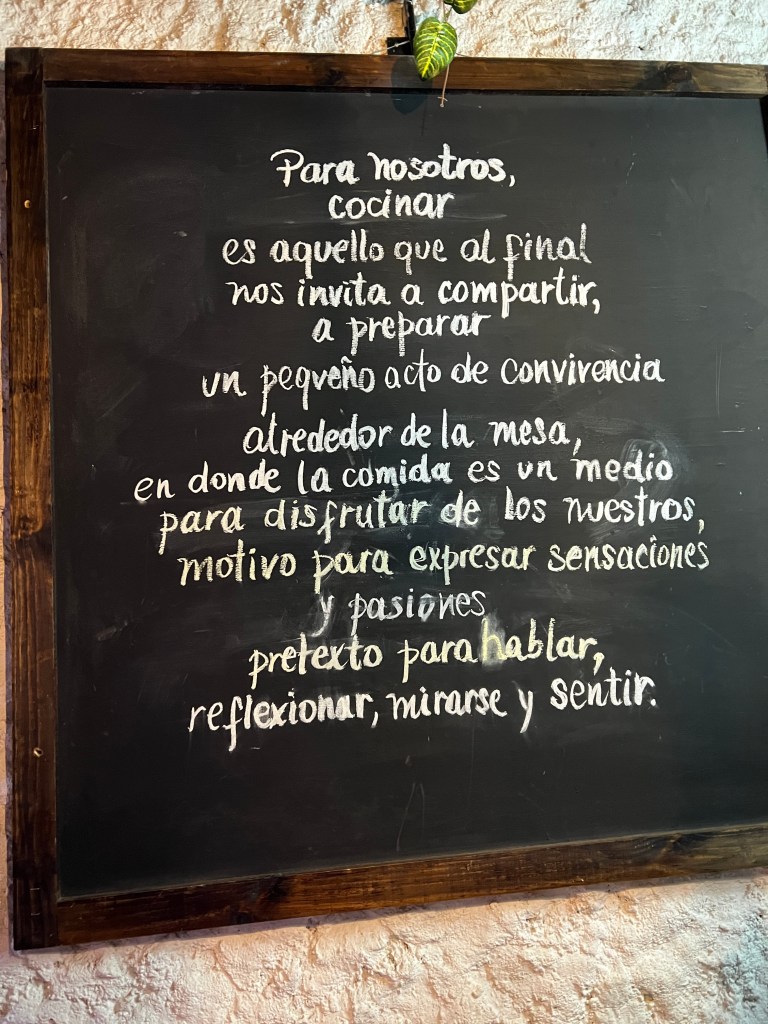 Para nosotros,
cocinar
es aquello que al final
nos invita a compartir,
a preparar
un pequeño acto de convivencia
alrededor de la mesa,
en donde la comida es un medio
para disfrutar de los nuestros,
motivo para expresar sensaciones
y pasiones
pretexto para hablar,
reflexionar, mirarse y sentir.